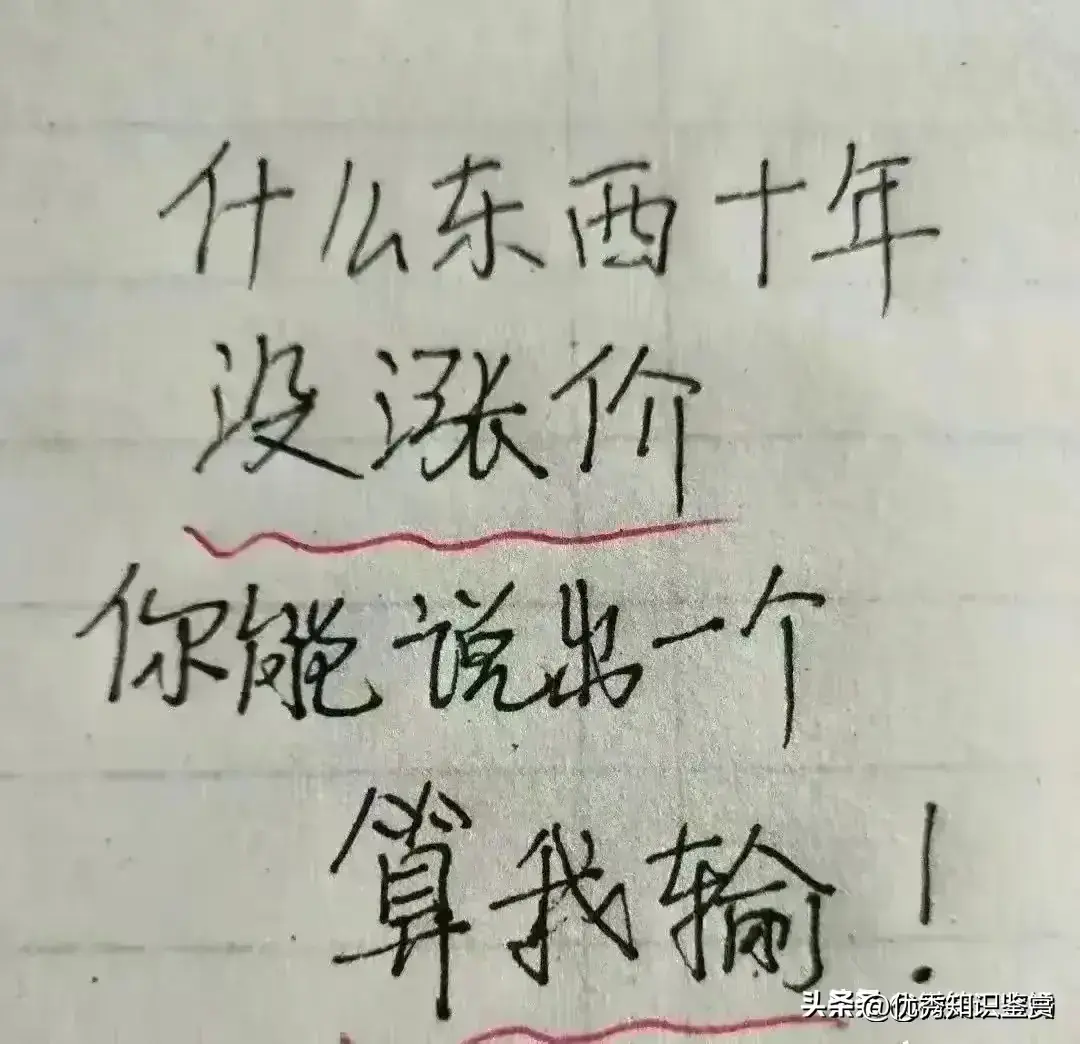 什么东西十年
没涨价
你能说出一个
算我输！
头条@优秀知识鉴赏